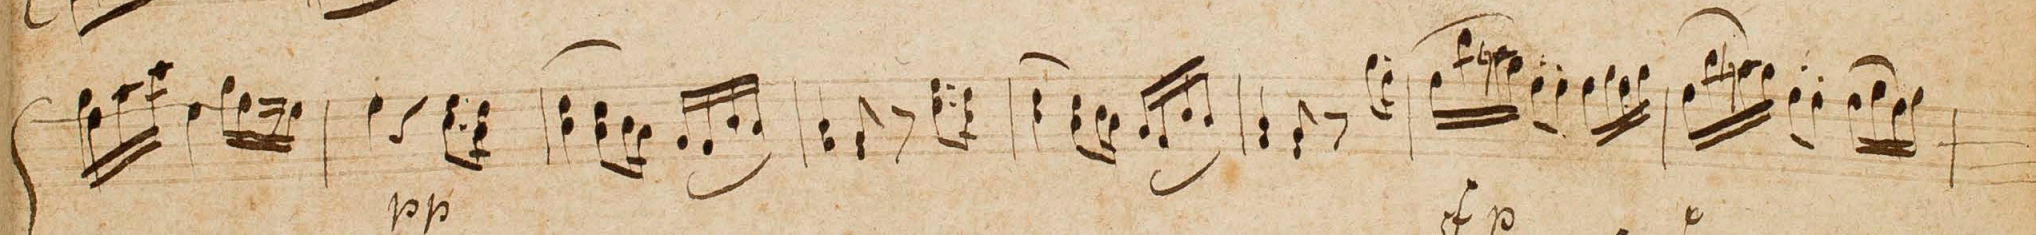 pp fp